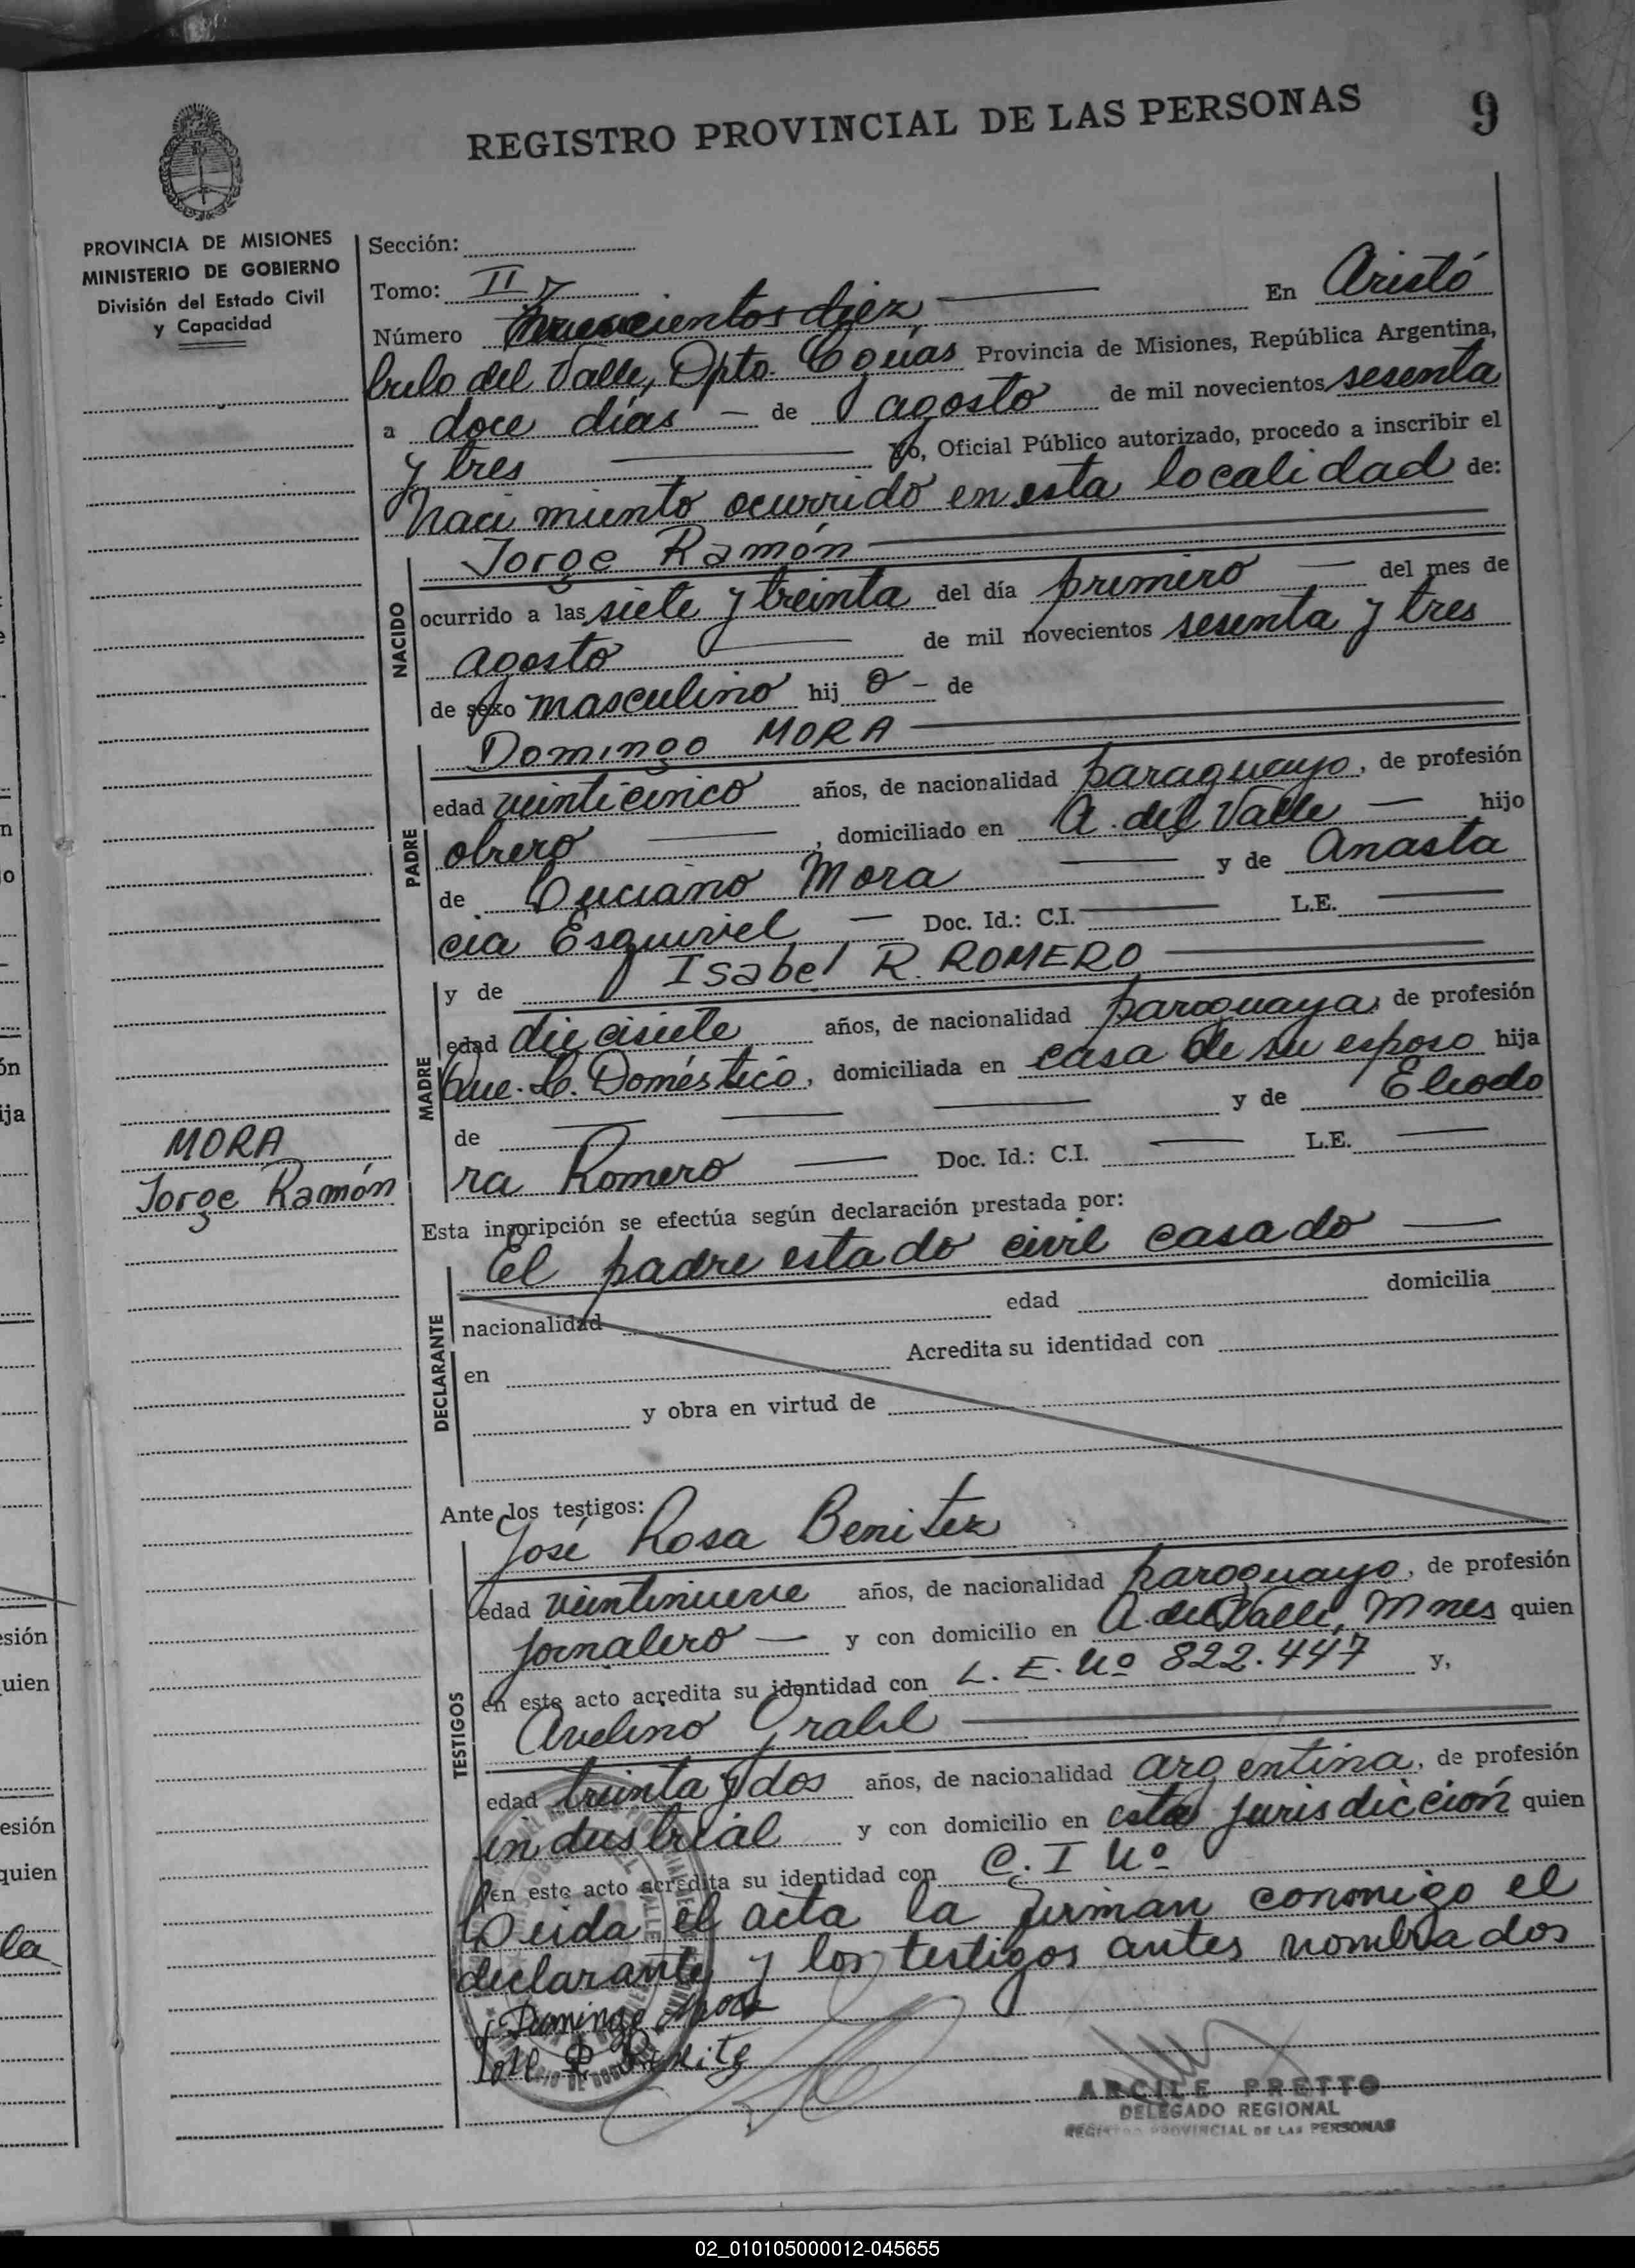 REGISTRO PROVINCIAL DE LAS PERSONAS
9
PROVINCIA DE MISIONES
MINISTERIO DE GOBIERNO
División del Estado Civil
y Capacidad
Sección:
Tomo: II
Número diez En Aristó
bulo del Valle, Dpto. Cgüas Provincia de Misiones, República Argentina,
a doce días de agosto de mil novecientos sesenta
y tres Yo, Oficial Público autorizado, procedo a inscribir el
Nacimiento ocurrido en esta localidad de:
NACIDO
Jorge Ramón
ocurrido a las siete y treinta del día primero del mes de
agosto de mil novecientos sesenta y tres
de sexo masculino hij o de
PADRE
Domingo MORA
edad veinticinco años, de nacionalidad paraguayo, de profesión
obrero, domiciliado en A. del Valle hijo
de Luciano Mora y de Anasta
cia Esquivel Doc. Id.: C.I. L.E.
MADRE
y de Isabel R. ROMERO
edad diecisiete años, de nacionalidad paraguaya, de profesión
Que. L. Doméstico, domiciliada en casa de su esposo hija
de y de Eliodo
ra Romero Doc. Id.: C.I. L.E.
MORA
Jorge Ramón
Esta inscripción se efectúa según declaración prestada por:
DECLARANTE
El padre estado civil casado
nacionalidad edad domicilia
en Acredita su identidad con
y obra en virtud de
Ante los testigos:
TESTIGOS
José Rosa Benitez
edad veintinueve años, de nacionalidad paraguayo, de profesión
jornalero y con domicilio en A. del Valle, Mnes quien
en este acto acredita su identidad con L. E. Nº 822.447 y,
Avelino Grabil
edad treinta y dos años, de nacionalidad argentina, de profesión
industrial y con domicilio en esta jurisdicción quien
en este acto acredita su identidad con C. I Nº
Leida el acta la firman conmigo el
declarante y los testigos antes nombrados
Domingo Mora
José R Benite
ARCILE PRETTO
DELEGADO REGIONAL
REGISTRO PROVINCIAL DE LAS PERSONAS
02_010105000012-045655